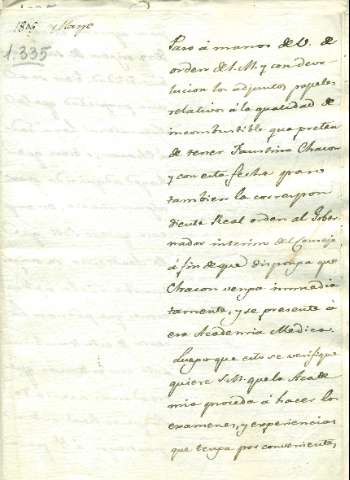 1805 Mayo
1.335
Paso á manos de V. de
orden de S.M. y con devo-
lucion los adjuntos papeles
relativos á la qualidad de
incombustible que preten-
de tener Faustino Chacon
y con esta fecha paso
tambien la correspon-
diente Real orden al Gober-
nador interino del Consejo
á fin de que disponga que
Chacon venga inmedia-
tamente, y se presente á
esa Academia Medica.
Luego que esto se verifique
quiere S.M. que la Acade-
mia proceda á hacer los
examenes, y experiencias
que tenga por convenientes,